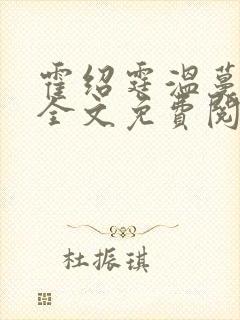 霍绍霆温蔓
全文免費閱
杜振琪